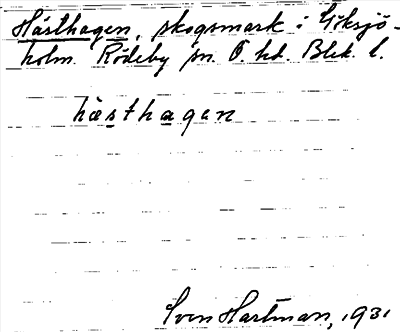 Hästhagen, skogsmark i Giksjö-
holm Rödeby sn. Ö. hd. Blek. l.
hæsthagen
Sven Hartman, 1931